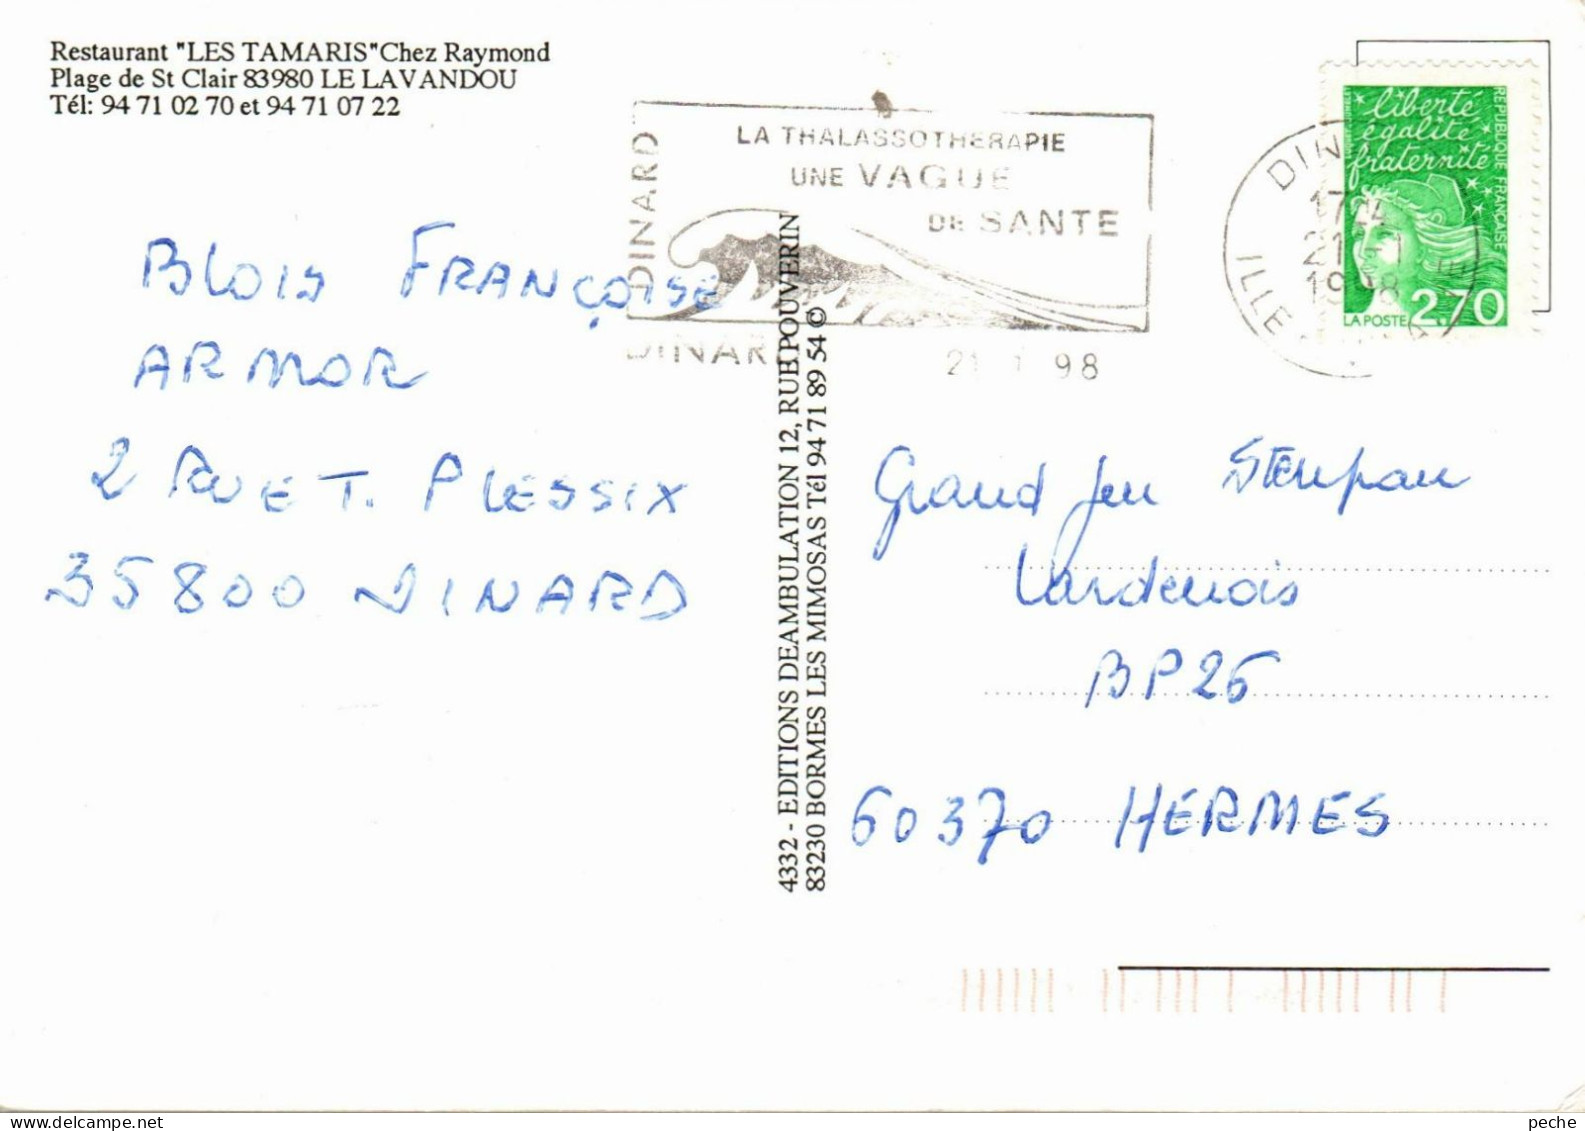 Restaurant "LES TAMARIS"Chez Raymond
Plage de St Clair 83980 LE LAVANDOU
Tél: 94 71 02 70 et 94 71 07 22
DINARD
LA THALASSOTHERAPIE
UNE VAGUE
DE SANTE
DINARD
21 1 98
DIN
17
21
1998
ILLE
liberté
égalité
fraternité
REPUBLIQUE FRANÇAISE
LA POSTE 2,70
BLOIS FRANÇOISE
ARMOR
2 RUE T. PLESSIX
35800 DINARD
4332 - EDITIONS DEAMBULATION 12, RUE POUVERIN
83230 BORMES LES MIMOSAS Tél 94 71 89 54 ©
Grand Jeu
Vardenois
BP26
60370 HERMES
delcampe.net
peche